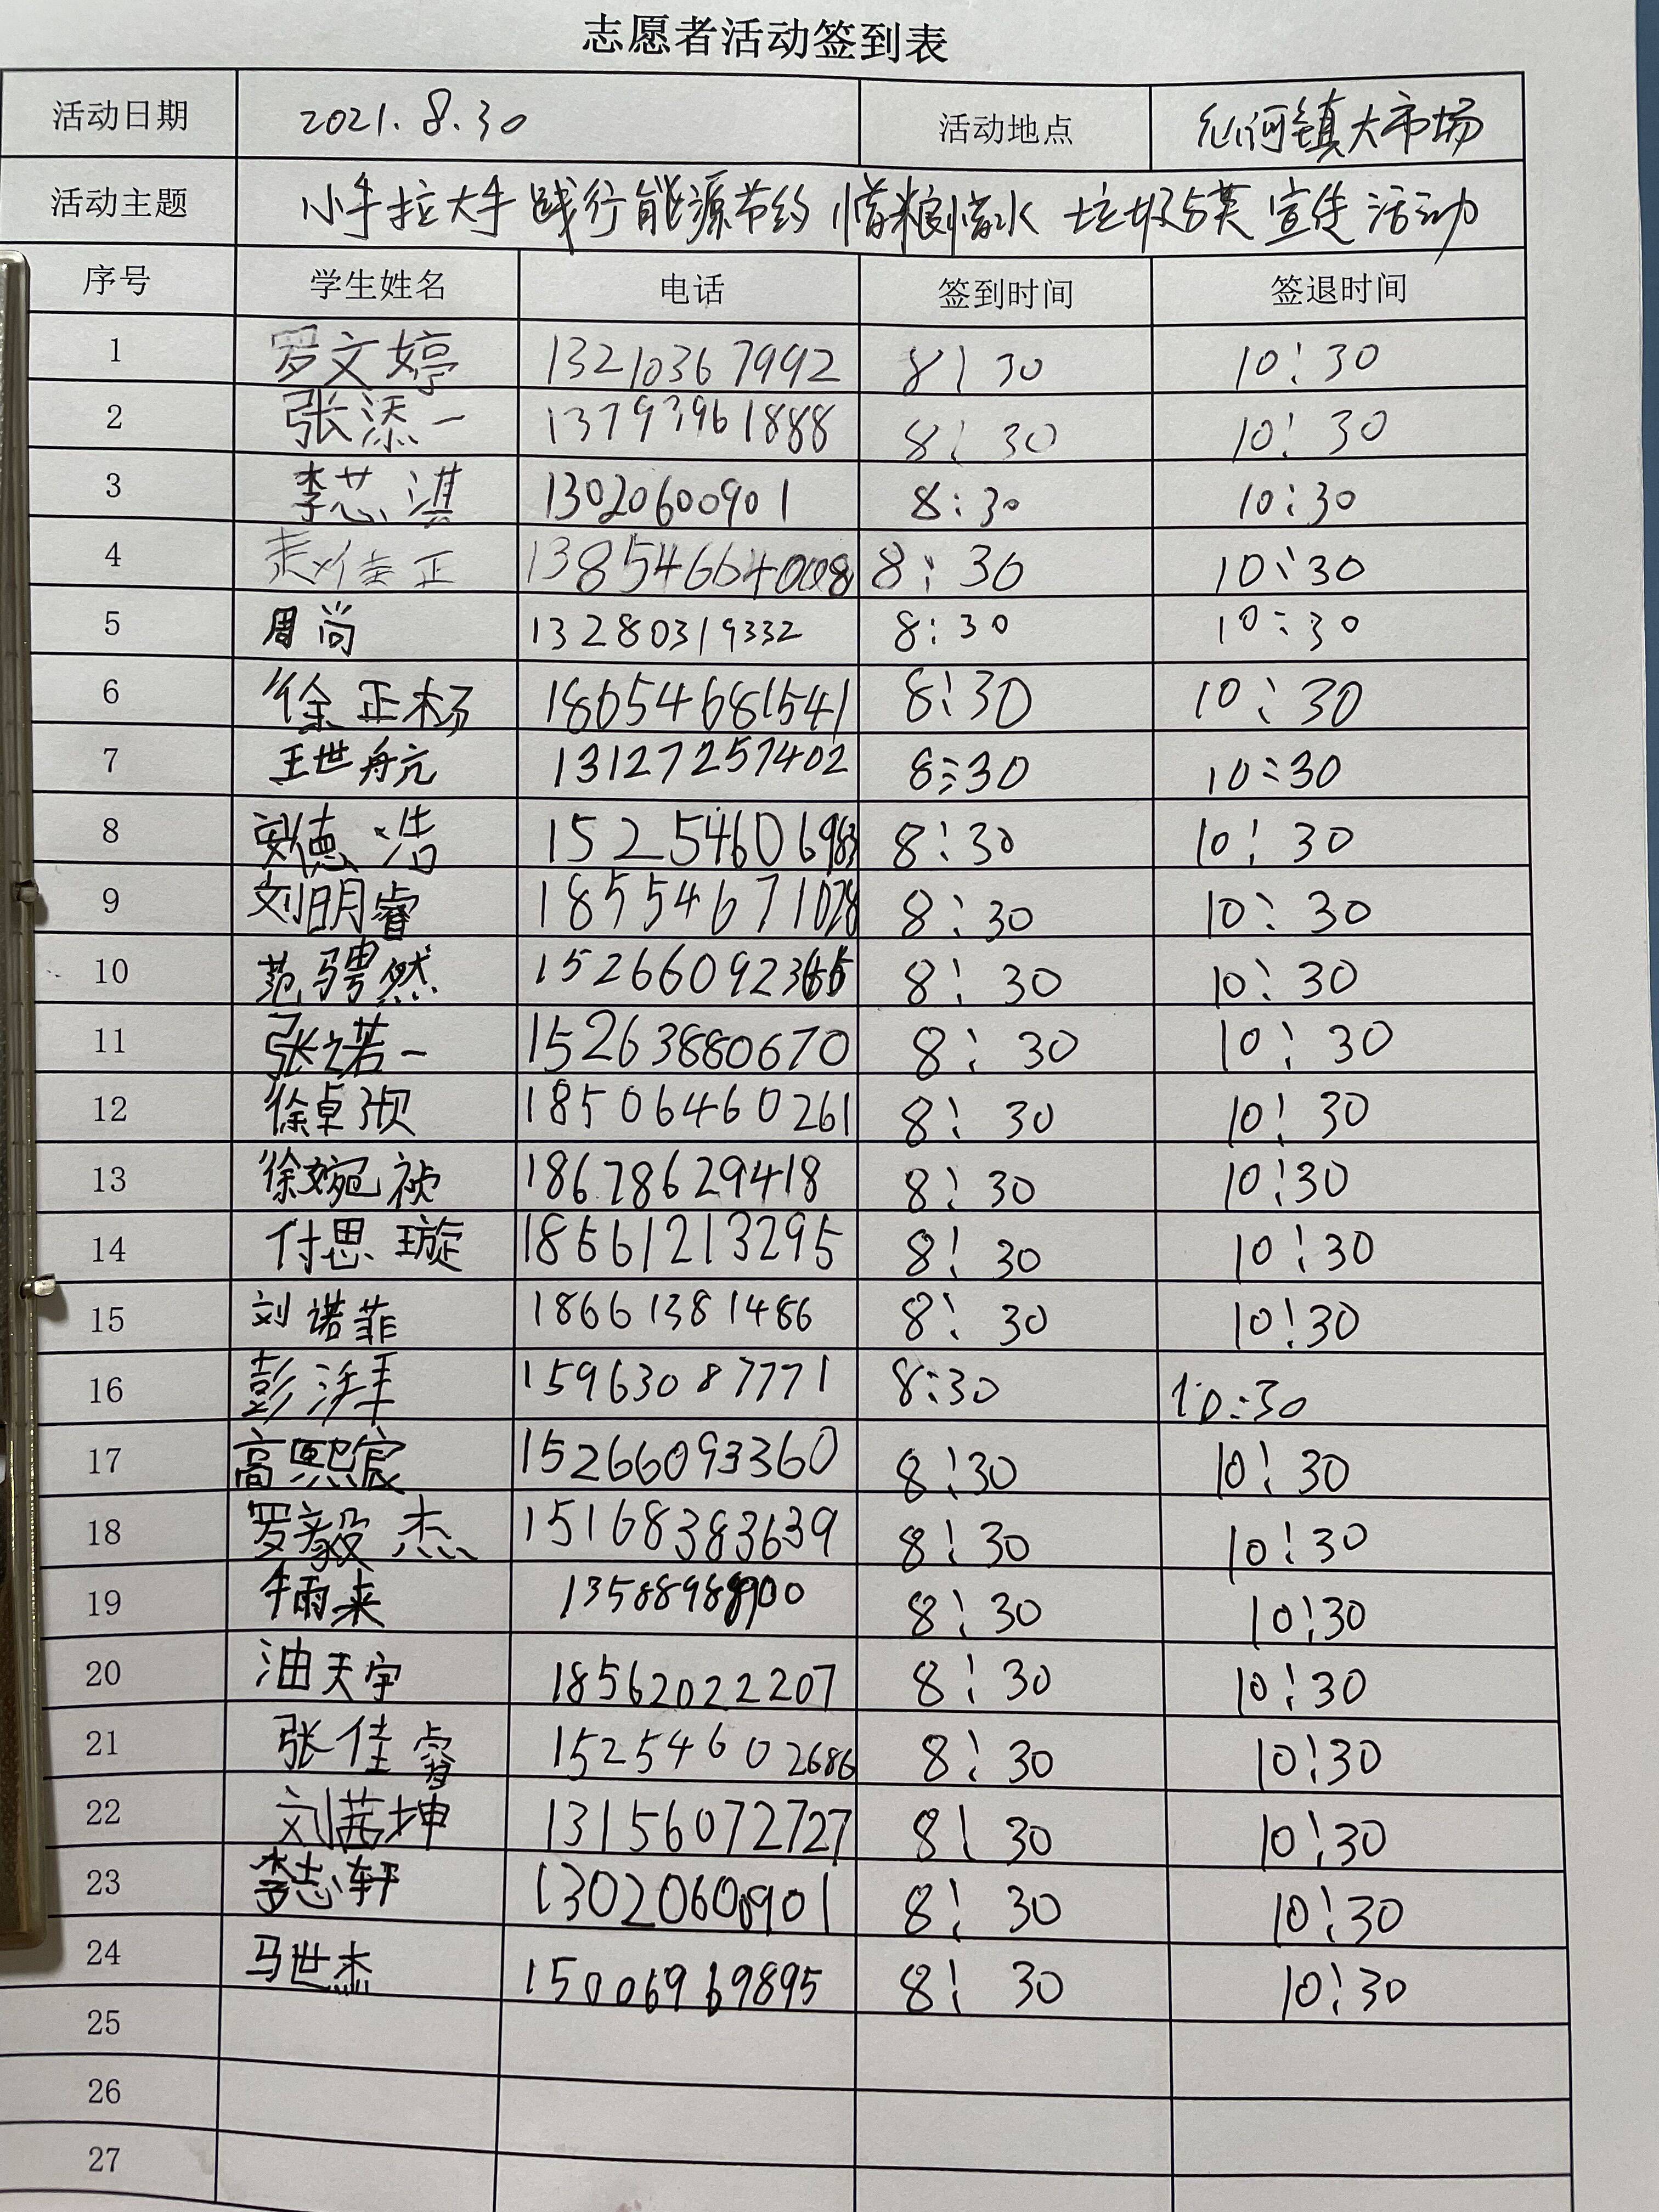 志愿者活动签到表
活动日期 2021.8.30 活动地点 河镇大市场
活动主题 小手拉大手 践行能源节约 惜粮惜水 垃圾分类宣传活动
序号 学生姓名 电话 签到时间 签退时间
1 罗文婷 13210367992 8:30 10:30
2 张添一 13793961888 8:30 10:30
3 李芯淇 13020600901 8:30 10:30
4 赵佳正 13854664008 8:30 10:30
5 周尚 13280319332 8:30 10:30
6 徐正杨 18654681541 8:30 10:30
7 王世航 13127257402 8:30 10:30
8 安德浩 15254606983 8:30 10:30
9 刘明睿 18554671028 8:30 10:30
10 范骋然 8:30 10:30
11 张诺一 15263880670 8:30 10:30
12 徐卓 18506460261 8:30 10:30
13 徐婉祯 18678629418 8:30 10:30
14 付思璇 18661213295 8:30 10:30
15 刘诺菲 18661381486 8:30 10:30
16 彭 15963087771 8:30 10:30
17 高熙宸 15266093360 8:30 10:30
18 罗毅杰 15168383639 8:30 10:30
19 牛雨来 8:30 10:30
20 油天宇 18562022207 8:30 10:30
21 张佳睿 15254602686 8:30 10:30
22 刘茜坤 13156072727 8:30 10:30
23 李志轩 13020600901 8:30 10:30
24 马世杰 15006969895 8:30 10:30
25
26
27